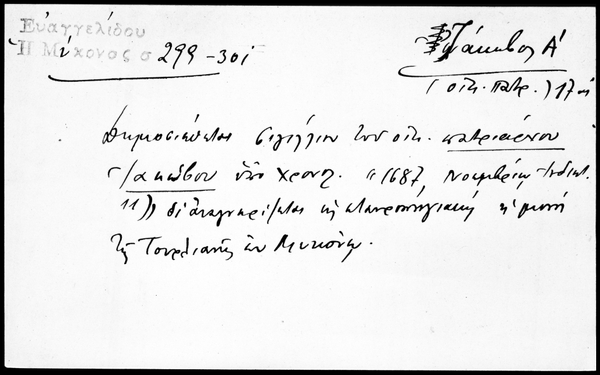 Εὐαγγελίδου
Ἡ Μύκονος σ 299-301
Ἰάκωβος Α΄
(οἰκ. πατρ.) 17ος
Δημοσιεύεται σιγίλλιον τοῦ οἰκ. πατριάρχου
Ἰακώβου ὑπὸ χρονολ. "1687, Νοεμβρίῳ, Ἰνδικτ.
11)) δι' ἀναγνωρίζεται ὡς σταυροπηγιακὴ ἡ μονὴ
τῆς Τουρλιανῆς ἐν Μυκόνῳ.